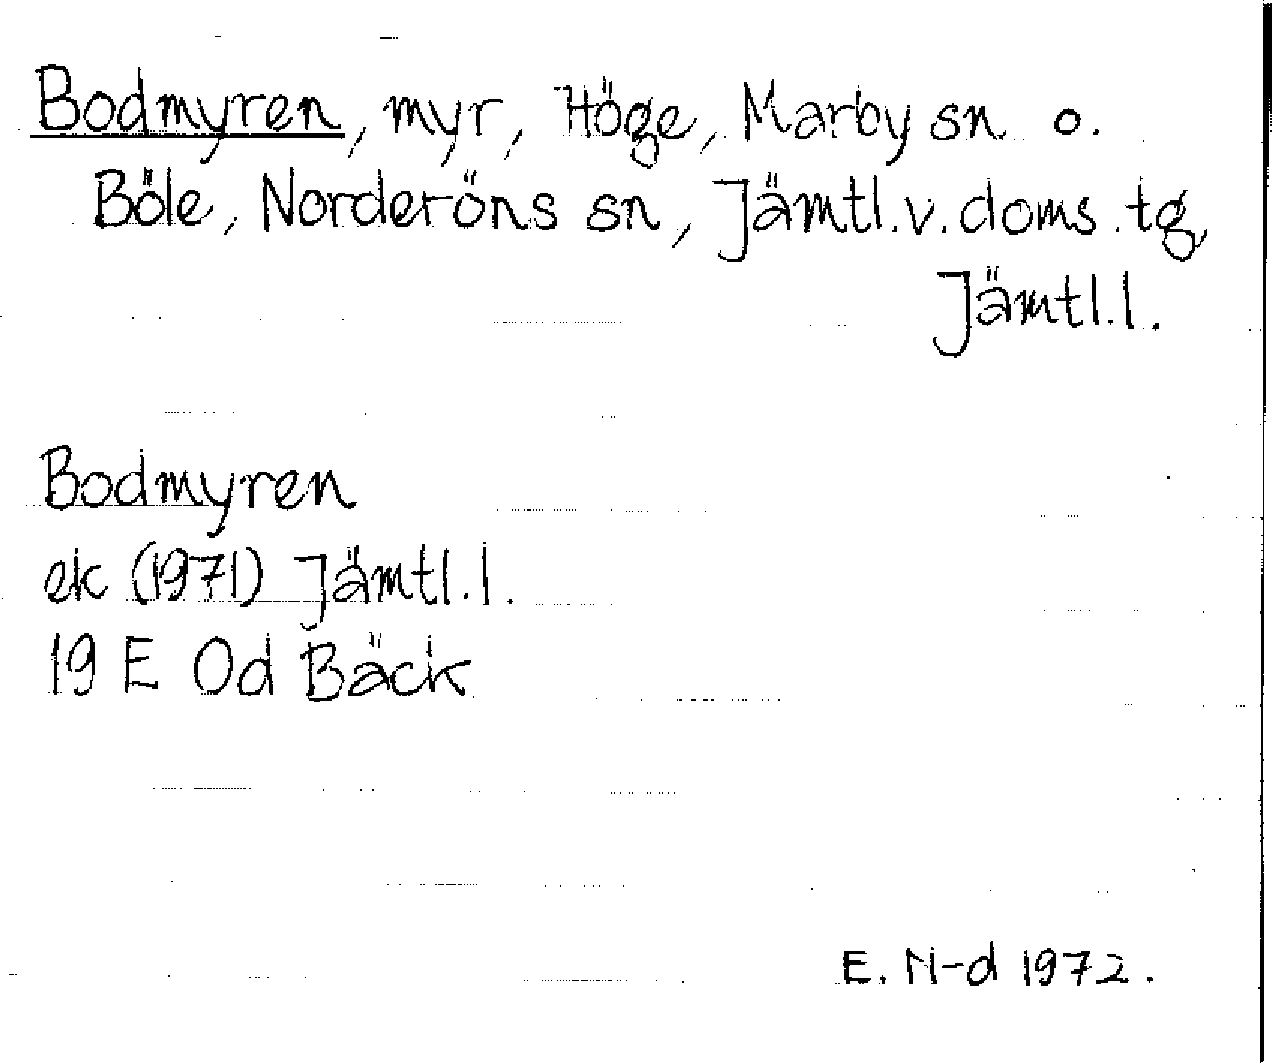 Bodmyren, myr, Höge, Marby sn o.
Böle, Norderöns sn, Jämtl.v.doms.tg,
Jämtl.l.
Bodmyren
ek (1971) Jämtl.l.
19 E Od Bäck
E. N-d 1972.